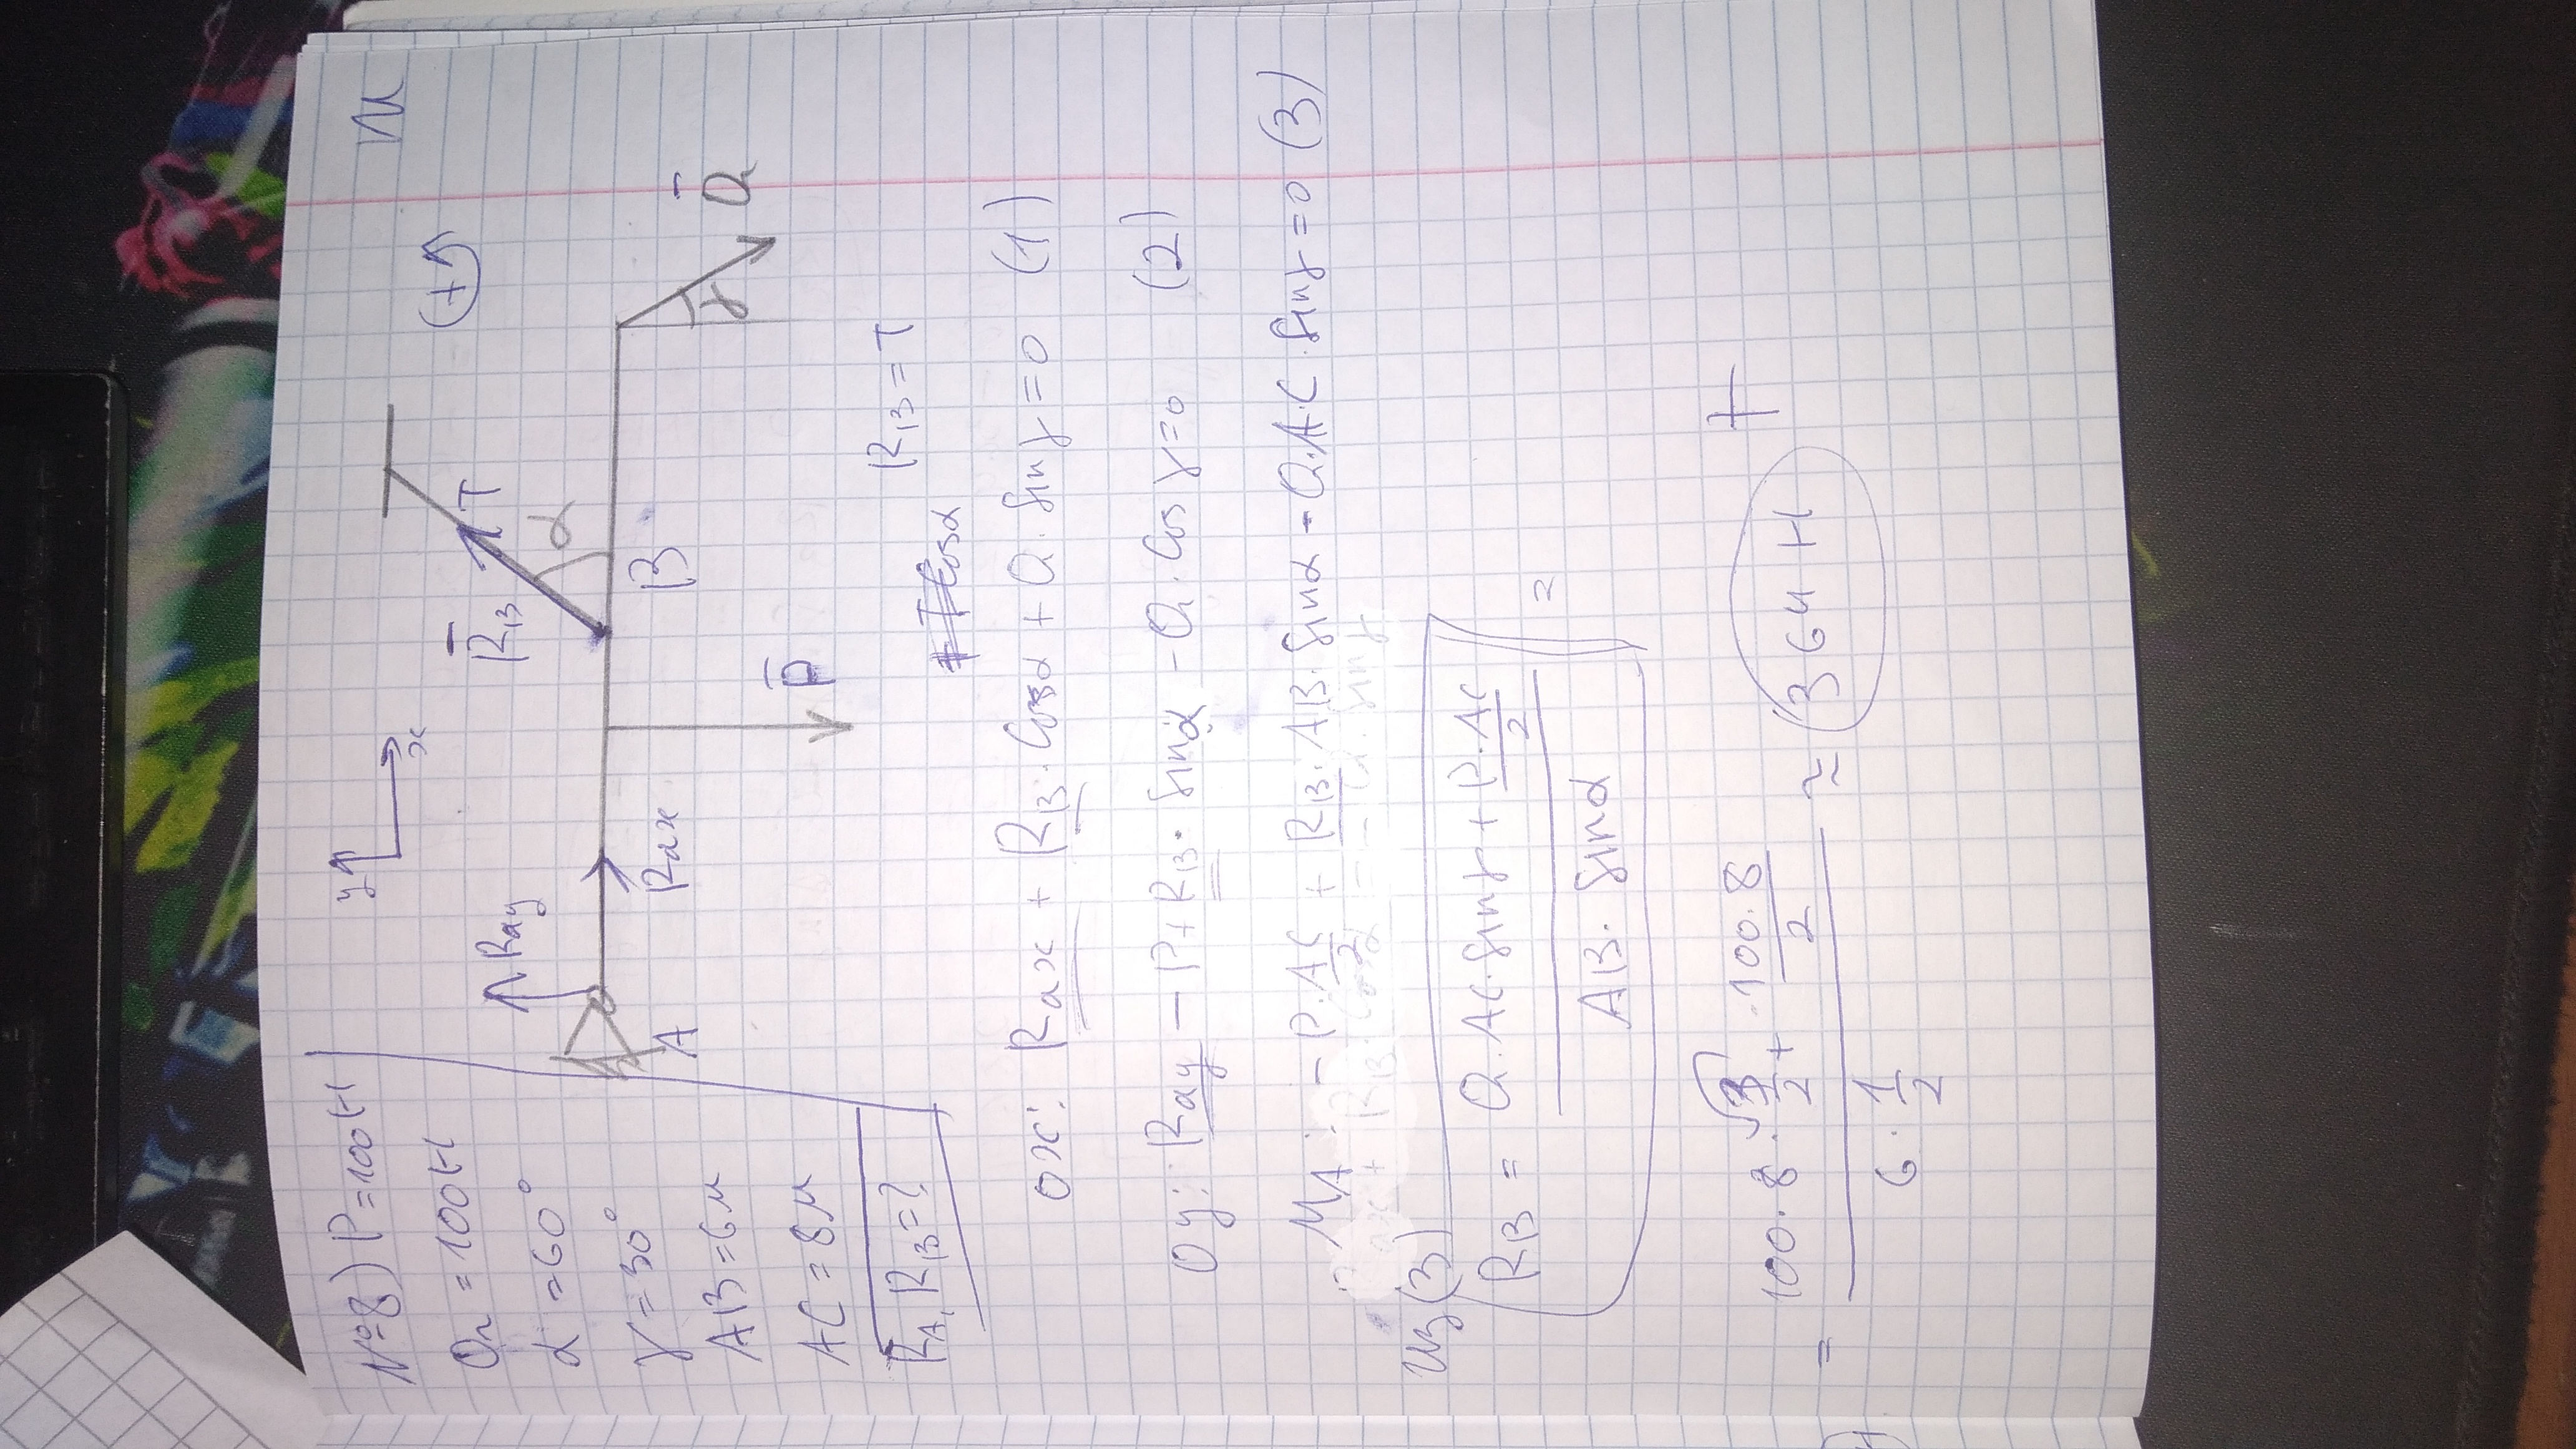 №8) P=100H
Q=100H
α=60°
γ=30°
AB=6м
AC=8м
RA, RB=?
y
x
м
+
Ray
A
Rax
R̄B
T
α
B
P̄
γ
Q̄
RB=T
Cosα
ox: Rax + RB·Cosα + Q·sinγ=0 (1)
oy: Ray - P+RB·sinα - Q·Cosγ=0 (2)
MA: -P·AC/2 + RB·AB·sinα - Q·AC·sinγ=0 (3)
Из(3)
RB = (Q·AC·sinγ + P·AC/2) / (AB·sinα) =
= (100·8·√3/2 + 100·8/2) / (6·1/2) ≈ 364 H +